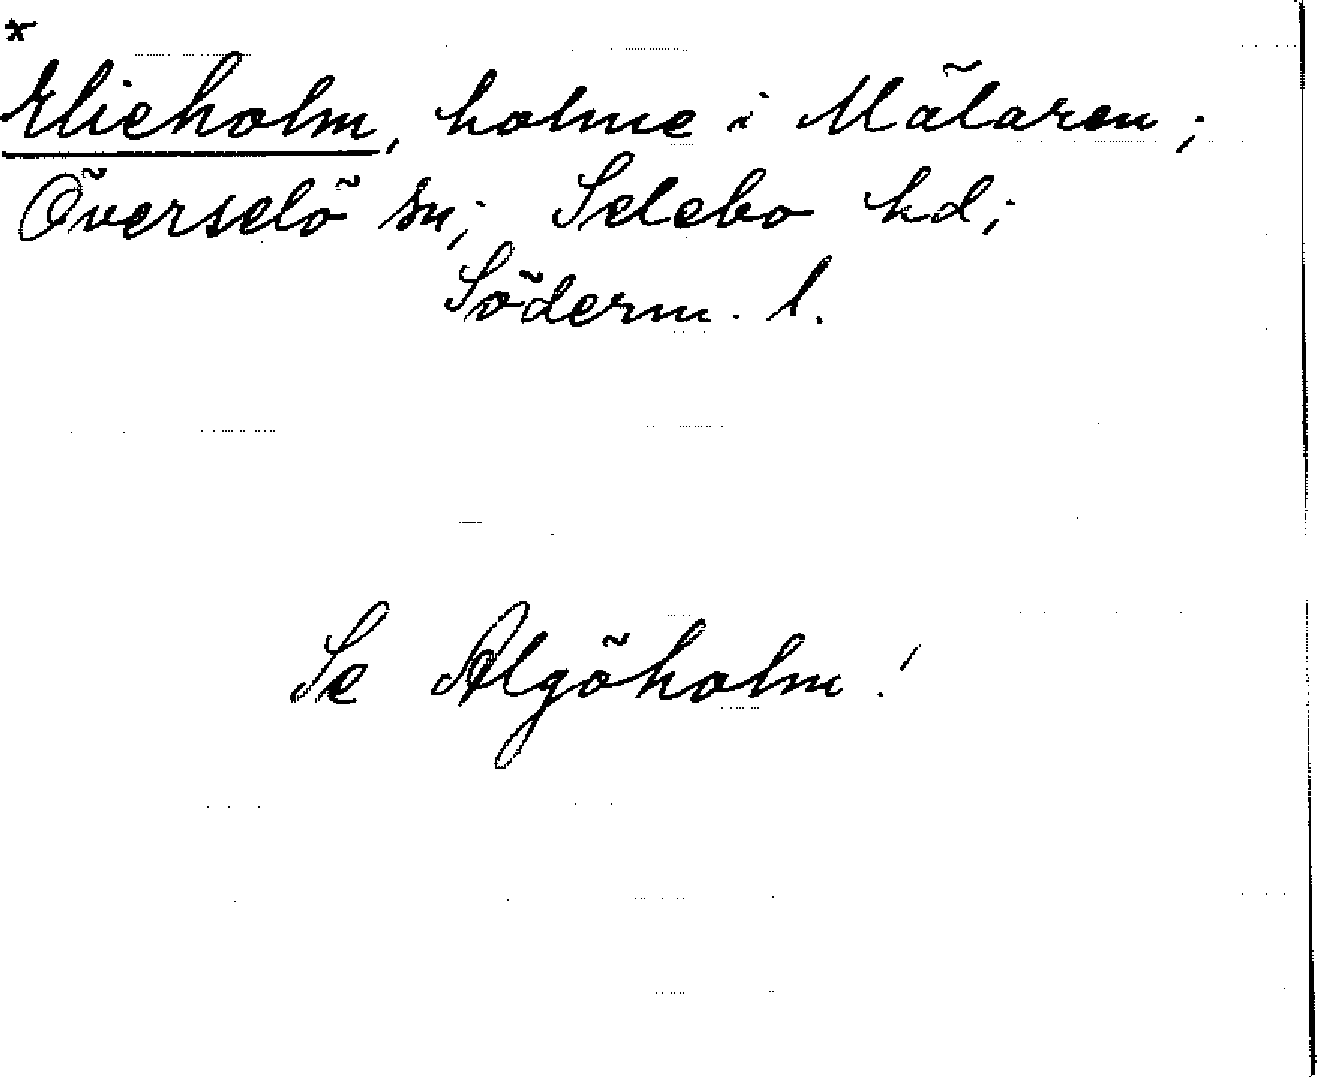 *
Elieholm, holme i Mälaren;
Överselö sn; Selebo hd;
Söderm. l.
Se Algöholm!